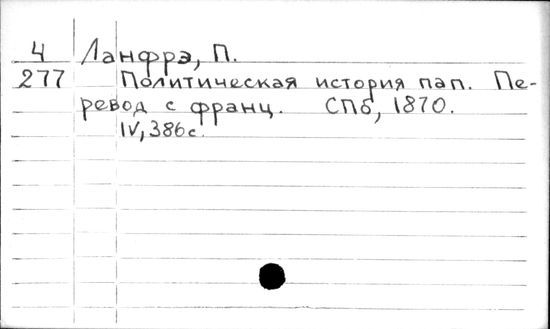 4 Ланфрэ, П.
277 Политическая история пап. Пе-
ревод с франц. СПб, 1870.
IV, 386 с.